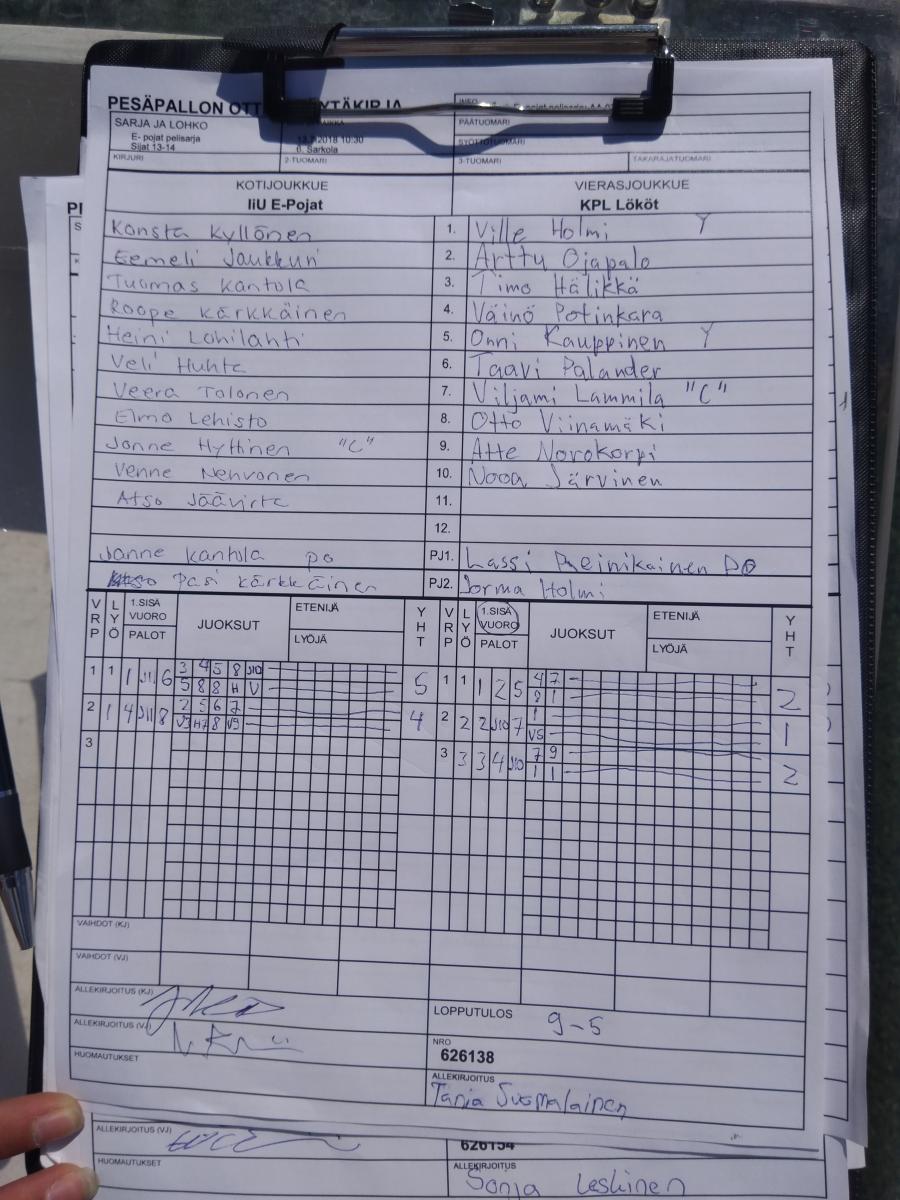 PESÄPALLON
SARJA JA LOHKO
E- pojat pelisarja
Sijat 13-14
2018 10:30
6. Sarkola
PÄÄTUOMARI
SYÖTTÖTUOMARI
KIRJURI 2-TUOMARI 3-TUOMARI TAKARAJATUOMARI
KOTIJOUKKUE VIERASJOUKKUE
IiU E-Pojat KPL Lököt
Konsta Kyllönen 1. Ville Holmi Y
Eemeli Jaukkuri 2. Arttu Ojapalo
Tuomas Kantola 3. Timo Hälikkä
Roope Kärkkäinen 4. Väinö Potinkara
Heini Lohilahti 5. Onni Kauppinen Y
Veli Huhta 6. Taavi Palander
Veera Talonen 7. Viljami Lammila "C"
Elmo Lehisto 8. Otto Viinamäki
Janne Hyttinen "C" 9. Atte Norokorpi
Venne Nenvonen 10. Nooa Järvinen
Atso Jäävirta 11.
12.
Janne Kantola po PJ1. Lassi Reinikainen PO
Pasi Kärkkäinen PJ2. Jorma Holmi
VRP LYÖ 1.SISÄ VUORO PALOT JUOKSUT ETENIJÄ LYÖJÄ YHT VRP LYÖ 1.SISÄ VUORO PALOT JUOKSUT ETENIJÄ LYÖJÄ YHT
1 1 1 J11 6 3 4 5 8 J10 5 1 1 1 2 5 4 7 2
5 8 8 H V 8 1
2 1 4 J11 8 2 5 6 7 4 2 2 2 J10 7 1 1
V9 H7 8 V9 V5
3 3 3 3 4 J10 7 9 2
1 1
VAIHDOT (KJ)
VAIHDOT (VJ)
ALLEKIRJOITUS (KJ)
LOPPUTULOS 9-5
ALLEKIRJOITUS (VJ)
NRO
626138
HUOMAUTUKSET
ALLEKIRJOITUS
Tanja Suomalainen
ALLEKIRJOITUS (VJ)
626154
HUOMAUTUKSET
ALLEKIRJOITUS
Sonja Leskinen